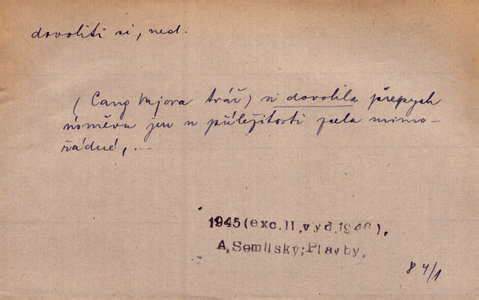 dovoliti si, ned.
(Cang Vajova tvář) si dovolila přepych
úsměvu jen u příležitosti zcela mimo-
řádné, ...
1945 (exc. II. vyd. 1946).
A. Semilský: Plavby.
84/1